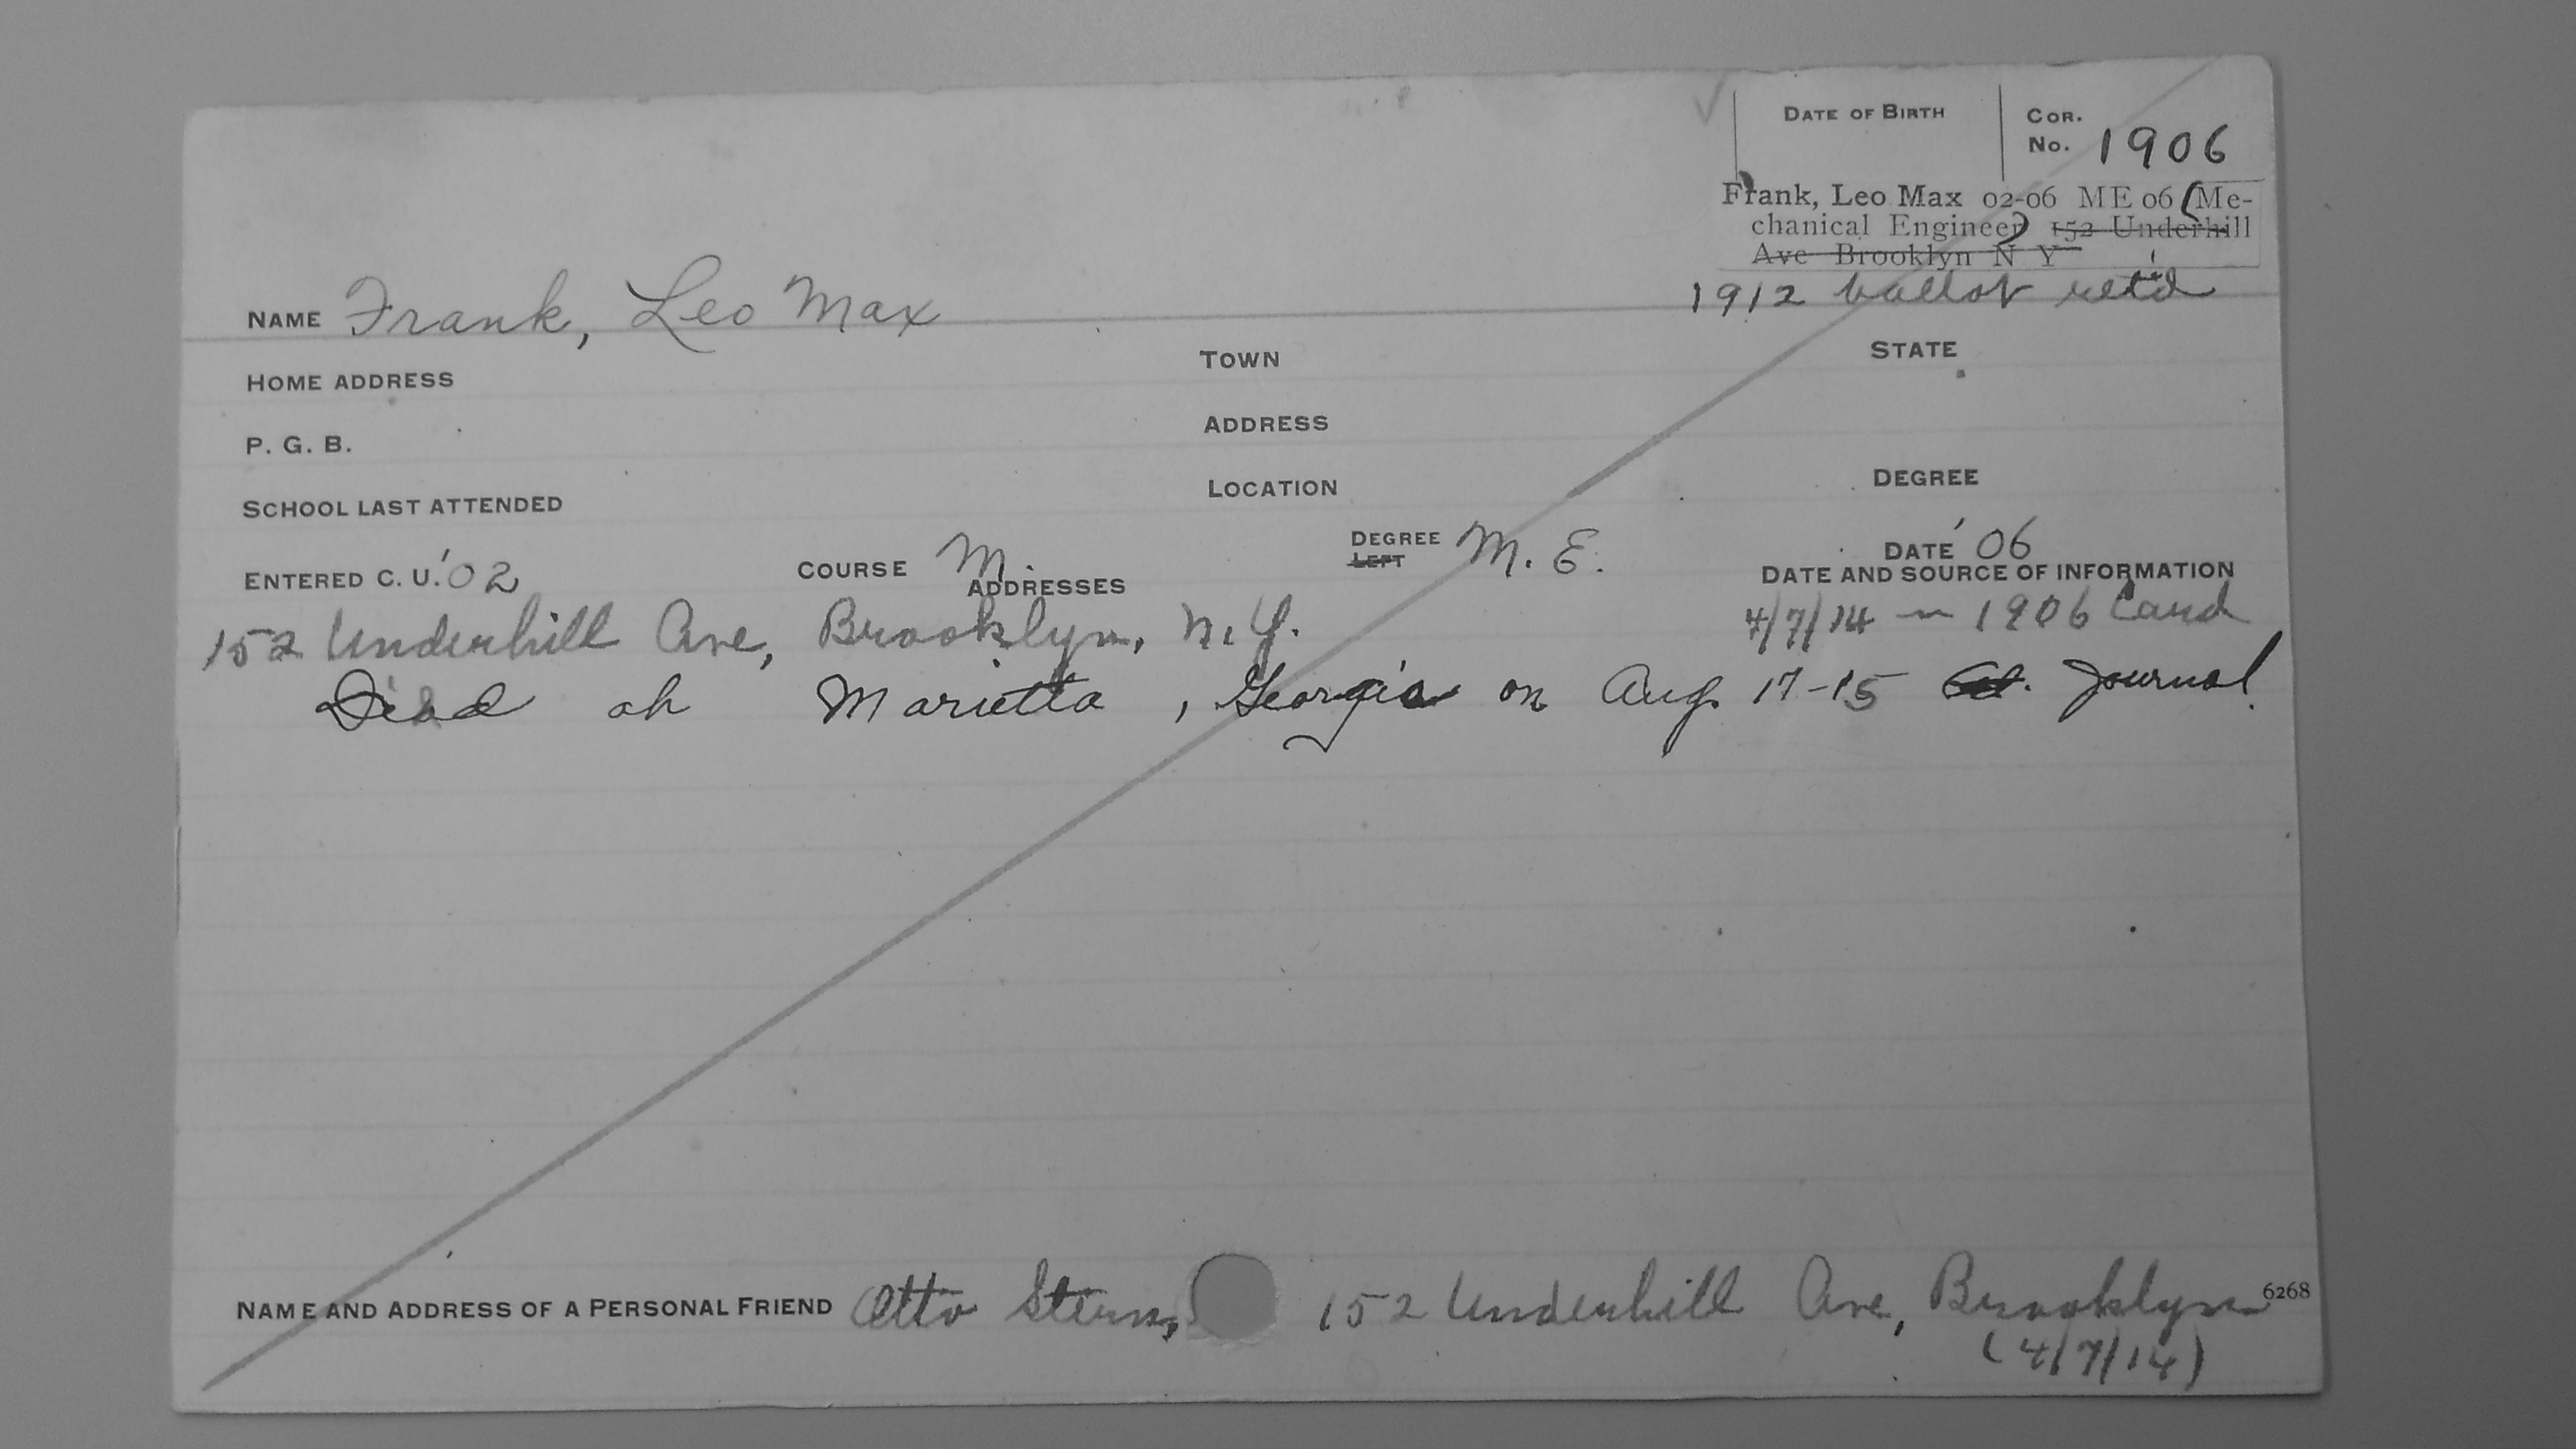 DATE OF BIRTH COR. No. 1906
Frank, Leo Max 02-06 ME 06 (Me-
chanical Engineer) 152 Underhill
Ave Brooklyn N Y
1912 ballot ret'd
NAME Frank, Leo Max
HOME ADDRESS TOWN STATE
P. G. B. ADDRESS
SCHOOL LAST ATTENDED LOCATION DEGREE
ENTERED C. U. '02 COURSE M. DEGREE LEFT M. E. DATE '06
ADDRESSES DATE AND SOURCE OF INFORMATION
152 Underhill Ave, Brooklyn, N.Y. 4/7/14 — 1906 Card
Died at Marietta, Georgia on Aug. 17-15 Journal.
NAME AND ADDRESS OF A PERSONAL FRIEND Otto Stern, 152 Underhill Ave, Brooklyn 6268
(4/7/14)